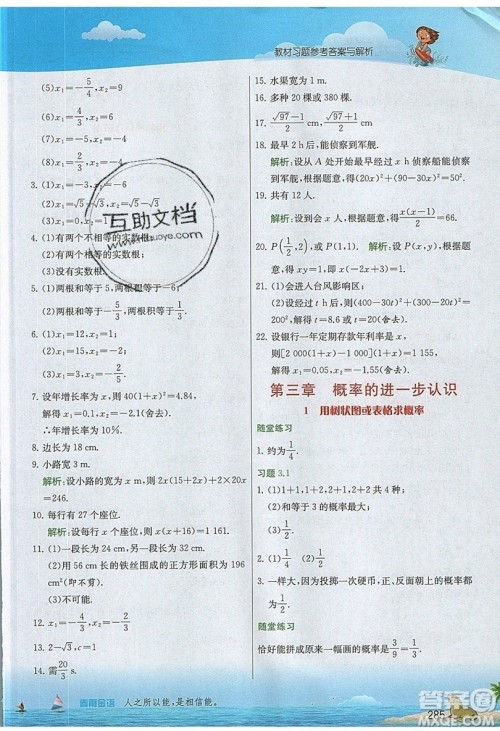 教材习题参考答案与解析
(5)x₁=-5/4,x₂=
(6)x₁=-4,x₂=
(7)x₁=-1,x₂=
(8)x₁=-4,x₂=
3. (1)x₁=-3,x₂=6
(2)x₁=√5,x₂=√5-√3
(3)x₁=0,x₂=1
4. (1)有两个不相等的实数根;
(2)有两个相等的实数根;
(3)没有实数根.
5. (1)两根和等于
(2)两根和等于-5/3,两根积等于
6. (1)x₁=12,x₂=
(2)x₁=1,x₂=-8/3
7. 年增长率为 x,则有 40(1+x)²=48.4.
解得:x₁=0.1,x₂=-2.1(舍去).
∴年增长率为 10%.
8. 边长为 18 cm.
9. 小路宽 3 m.
解析:设小路的宽为 x m,则 2x(15+x)+2×20x
=246.
10. 每行有 27 个座位.
解析:设每行 x 个座位,则有 x(x+16)=1 161.
11. (1)一段为 24 cm,另一段为 32 cm.
(2)用 56 cm 长的铁丝围成的正方形面积为 196
cm²(即不剪).
(3)不可能.
12. x₁=-1/3,x₂=-3
13. 2-√3,c=1
14. 需20/3 s.
15. 水渠宽为 1 m.
16. 多种 20 棵或 380 棵.
17. (√97-1)/2 cm,(√97+1)/2 cm.
18. 最早 2 h 后,能侦察到军舰.
解析:设从 A 处开始最早经过 x h 侦察船能侦察
到军舰,根据题意,得(20x)²+(90-30x)²=50².
19. 共有 12 人.
解析:设到会 x 人,根据题意,得x(x-1)/2=66.
20. P(1/2,2)或 P(1,1) 解析:设 P(x,y),根据题
意,得 xy=1,即 x(-2x+3)=1.
21. (1)会进入台风影响区;
(2)设经过 t h 后,则有(400-30t)²+(300-20t)²
=200²,解得 t=8.6 或 t=10.6(舍去).
22. 设银行一年定期存款年利率是 x,
则有[2 000(1+x)-1 000](1+x)=1 155,
解得 x=0.05,x=-1.55(舍去).
第三章 概率的进一步认识
1 用树状图或表格求概率
随堂练习
1. 约为1/4.
习题 3.1
1. (1)1+1,1+2,1+3,2+1,2+2,2+3.
(2)和等于 3 的概率最大.
(3)1/3.
2. 1/4
3. 一样大,因为投掷一次硬币,正、反面的概率都
为1/2.
随堂练习
恰好能拼成房子的概率为3/9=1/3.
互助文档
人之所以能,是相信能。
285
答案圈